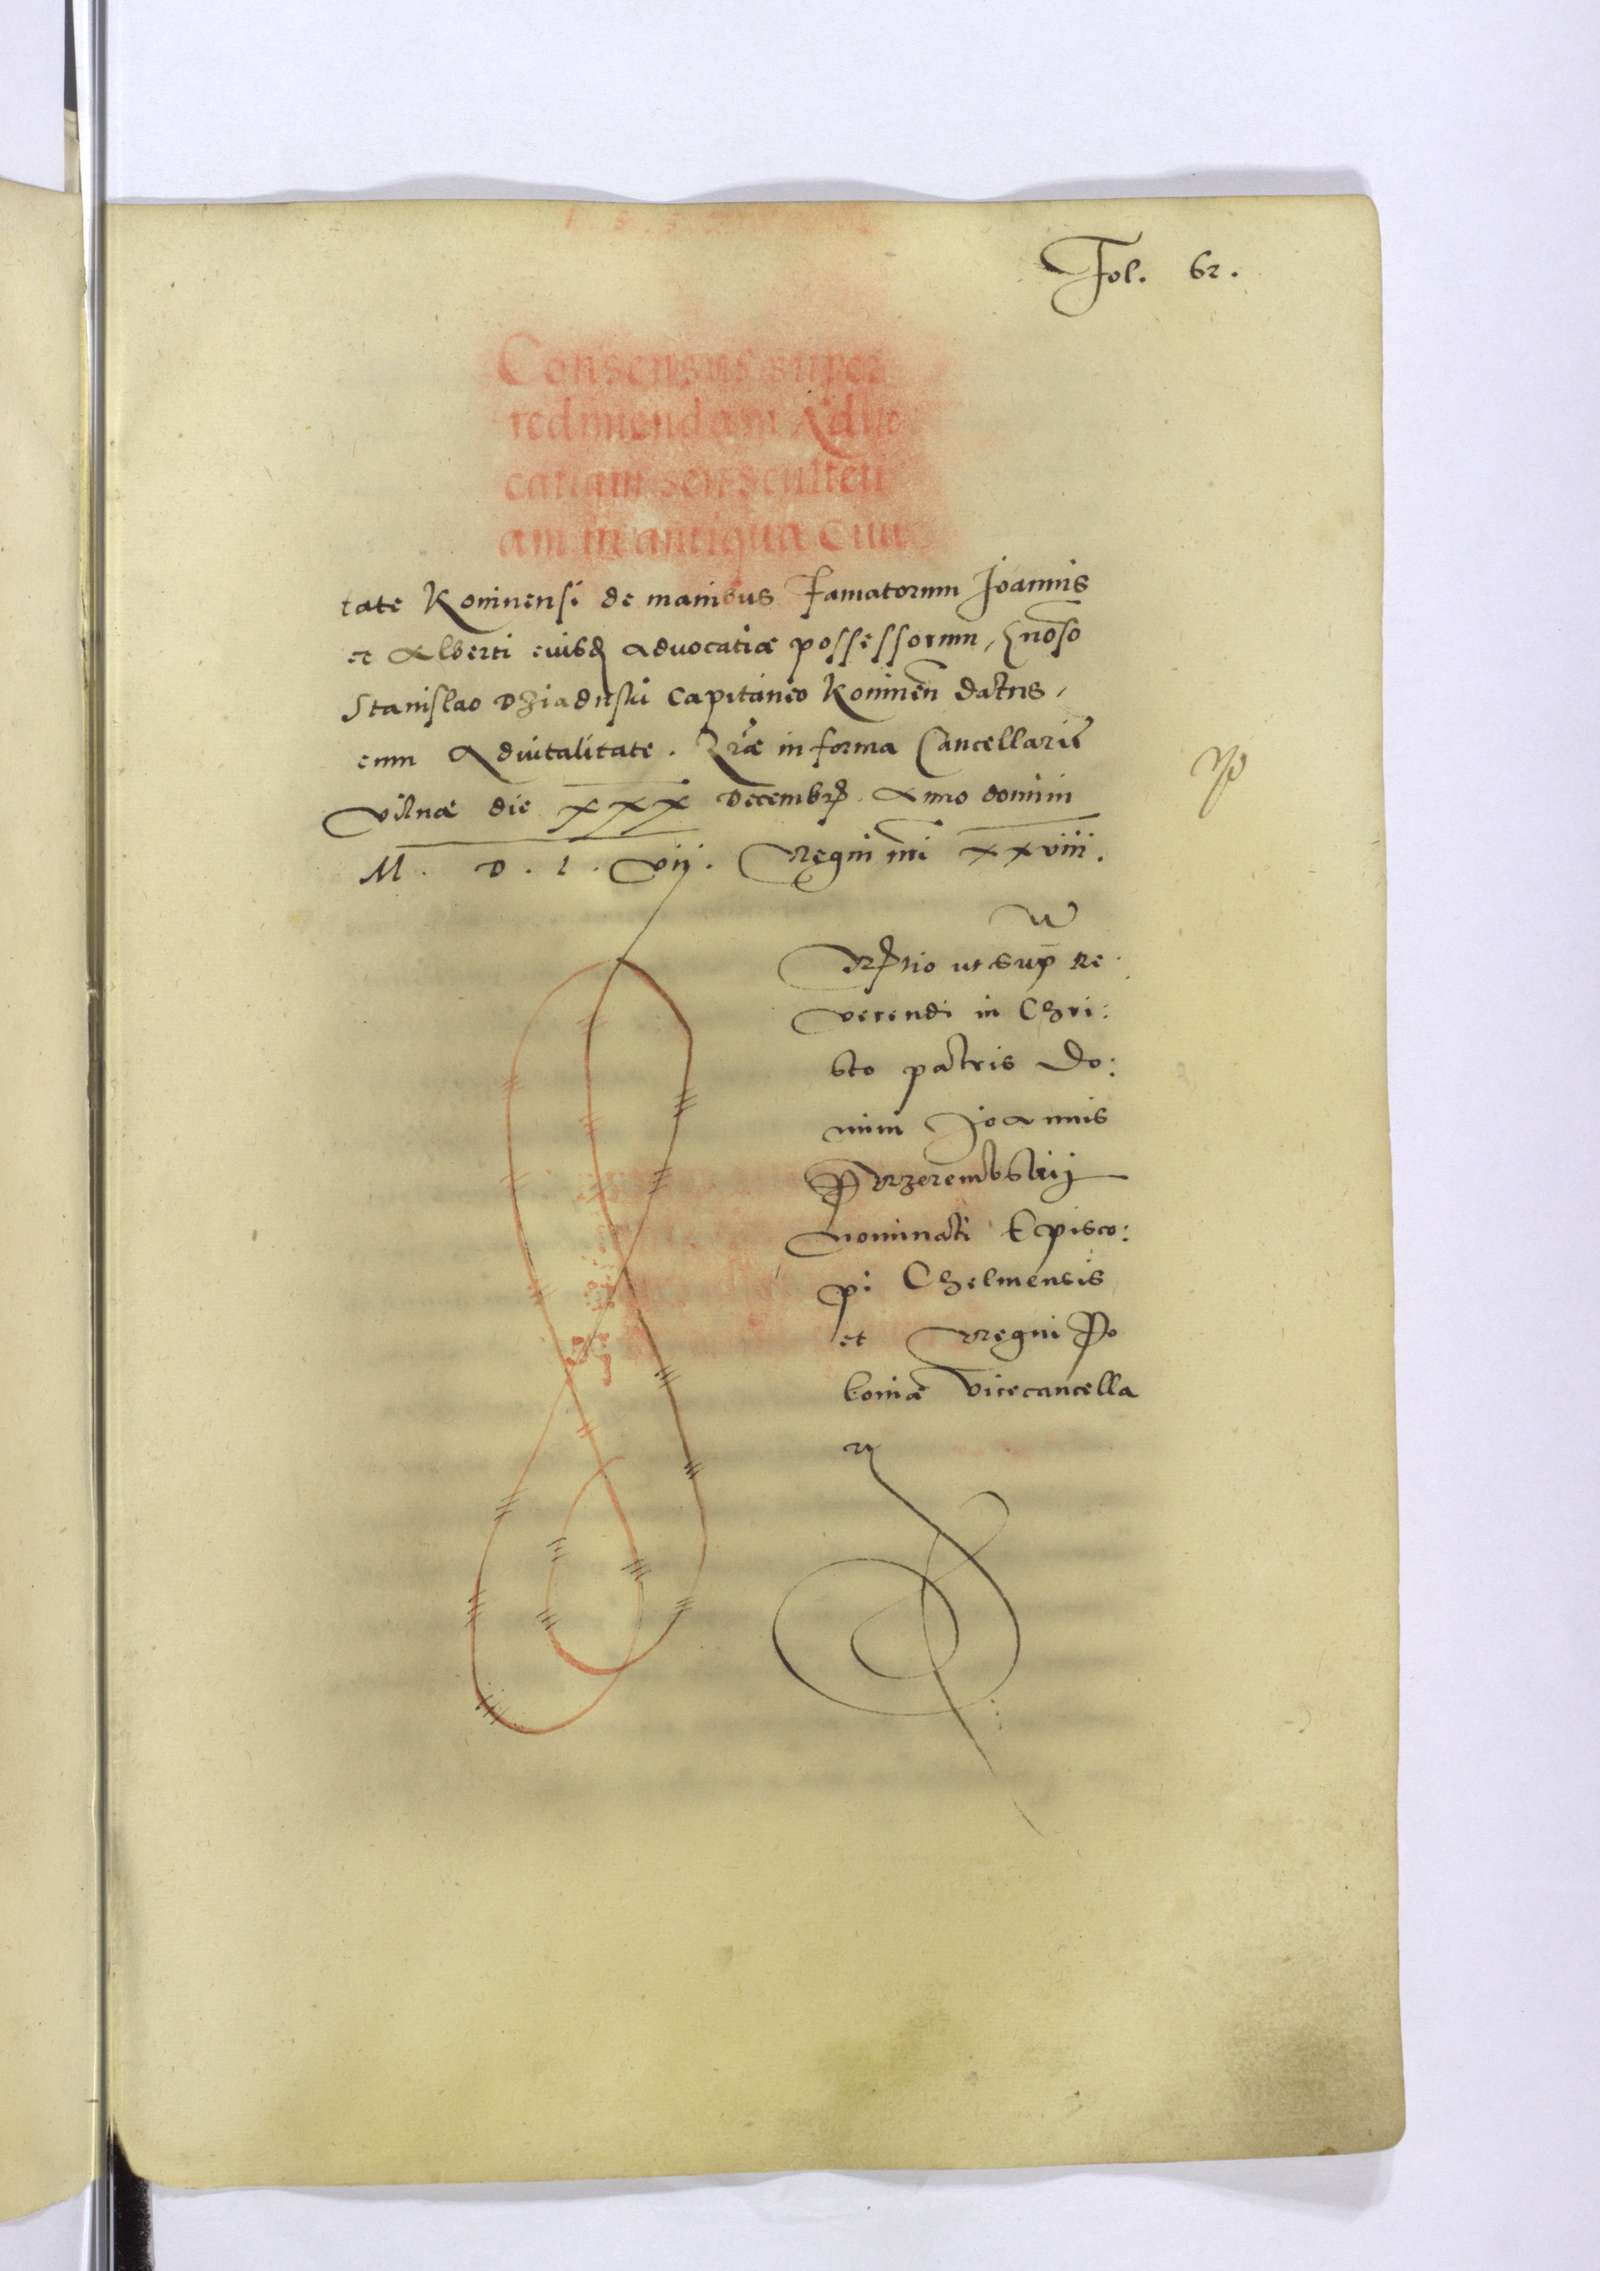 Fol. 62.
Consensus super
redimendam Aduo
catiam seu sculteti
am in antiqua Ciui
tate Koninensi de manibus Famatorum Joannis
et Alberti eiusd advocatiæ possessorum, Gnoso
Stanislao Dziaduski Capitaneo Koninen datus,
cum Aduitalitate. in forma Cancellariæ
Vilnæ die XXX Decembr. Anno domini
M. D. L. vij. Regni nri XXviii.
Rltio ut sup Re
verendi in Chri:
sto patris Do:
mini Joannis
Przerembskij
nominati Episco:
pi Chelmensis
et Regni Po
loniæ Vicecancella
rij